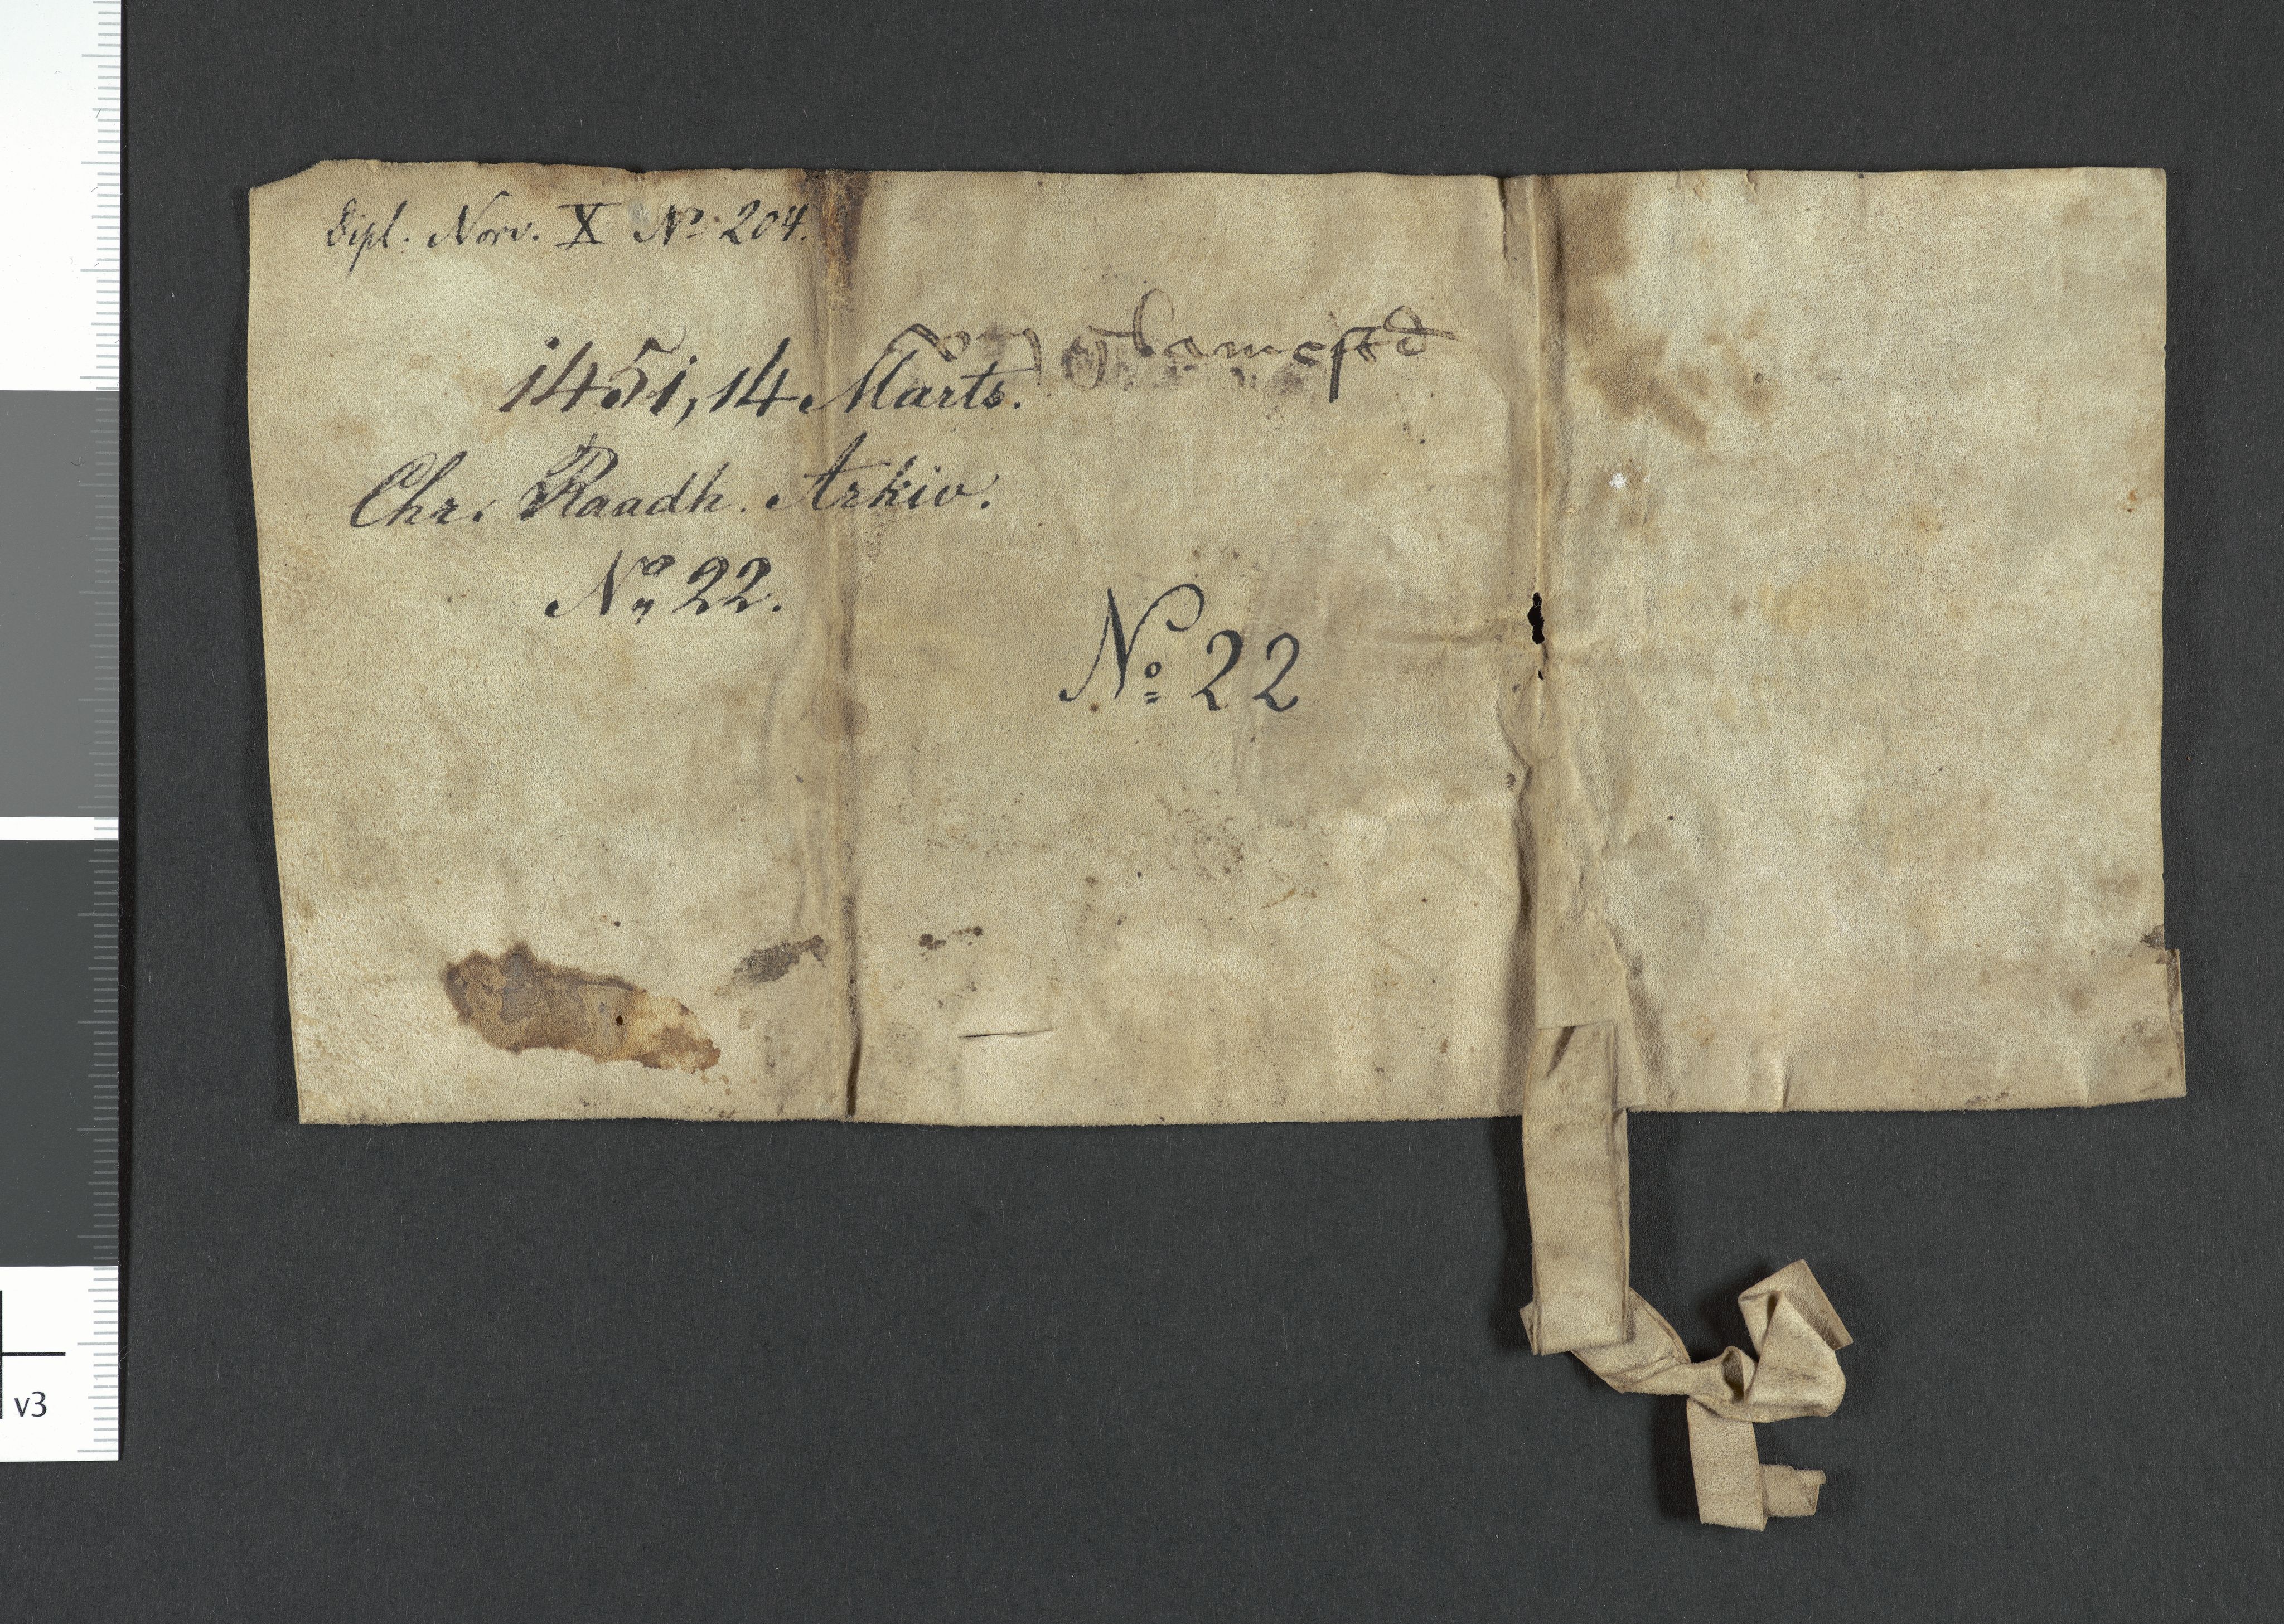 Dipl. Norv. X No. 204.
1451, 14 Marts.
Chr. Raadh. Arkiv.
No 22.
No 22
v3